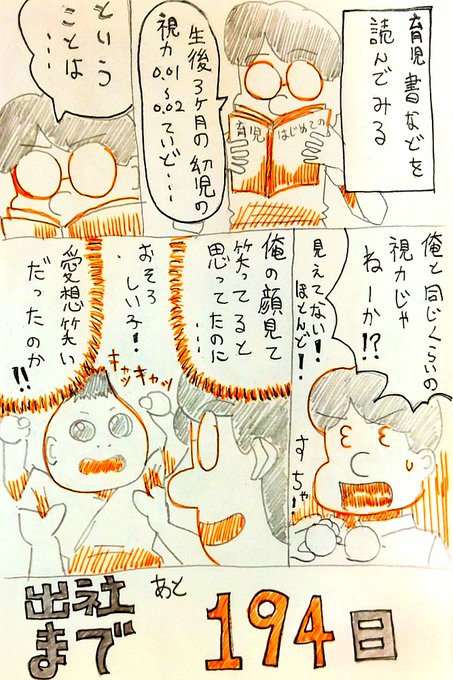 育児書などを
読んでみる
はじめての
育児
生後3ヶ月の幼児の
視力
0.01
~
0.02
ていど…
という
ことは
…
俺と同じくらいの
視力じゃ
ねーか!?
見えてない!
ほとんど!
すちゃ
俺の顔見て
笑ってると
思ってたのに
…
おそろ
しい子!
愛想笑い
だったのか
!!
キャッキャッ
出社
まで
あと
194日